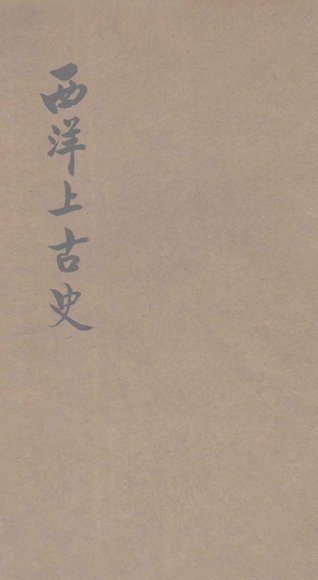 西洋上古史